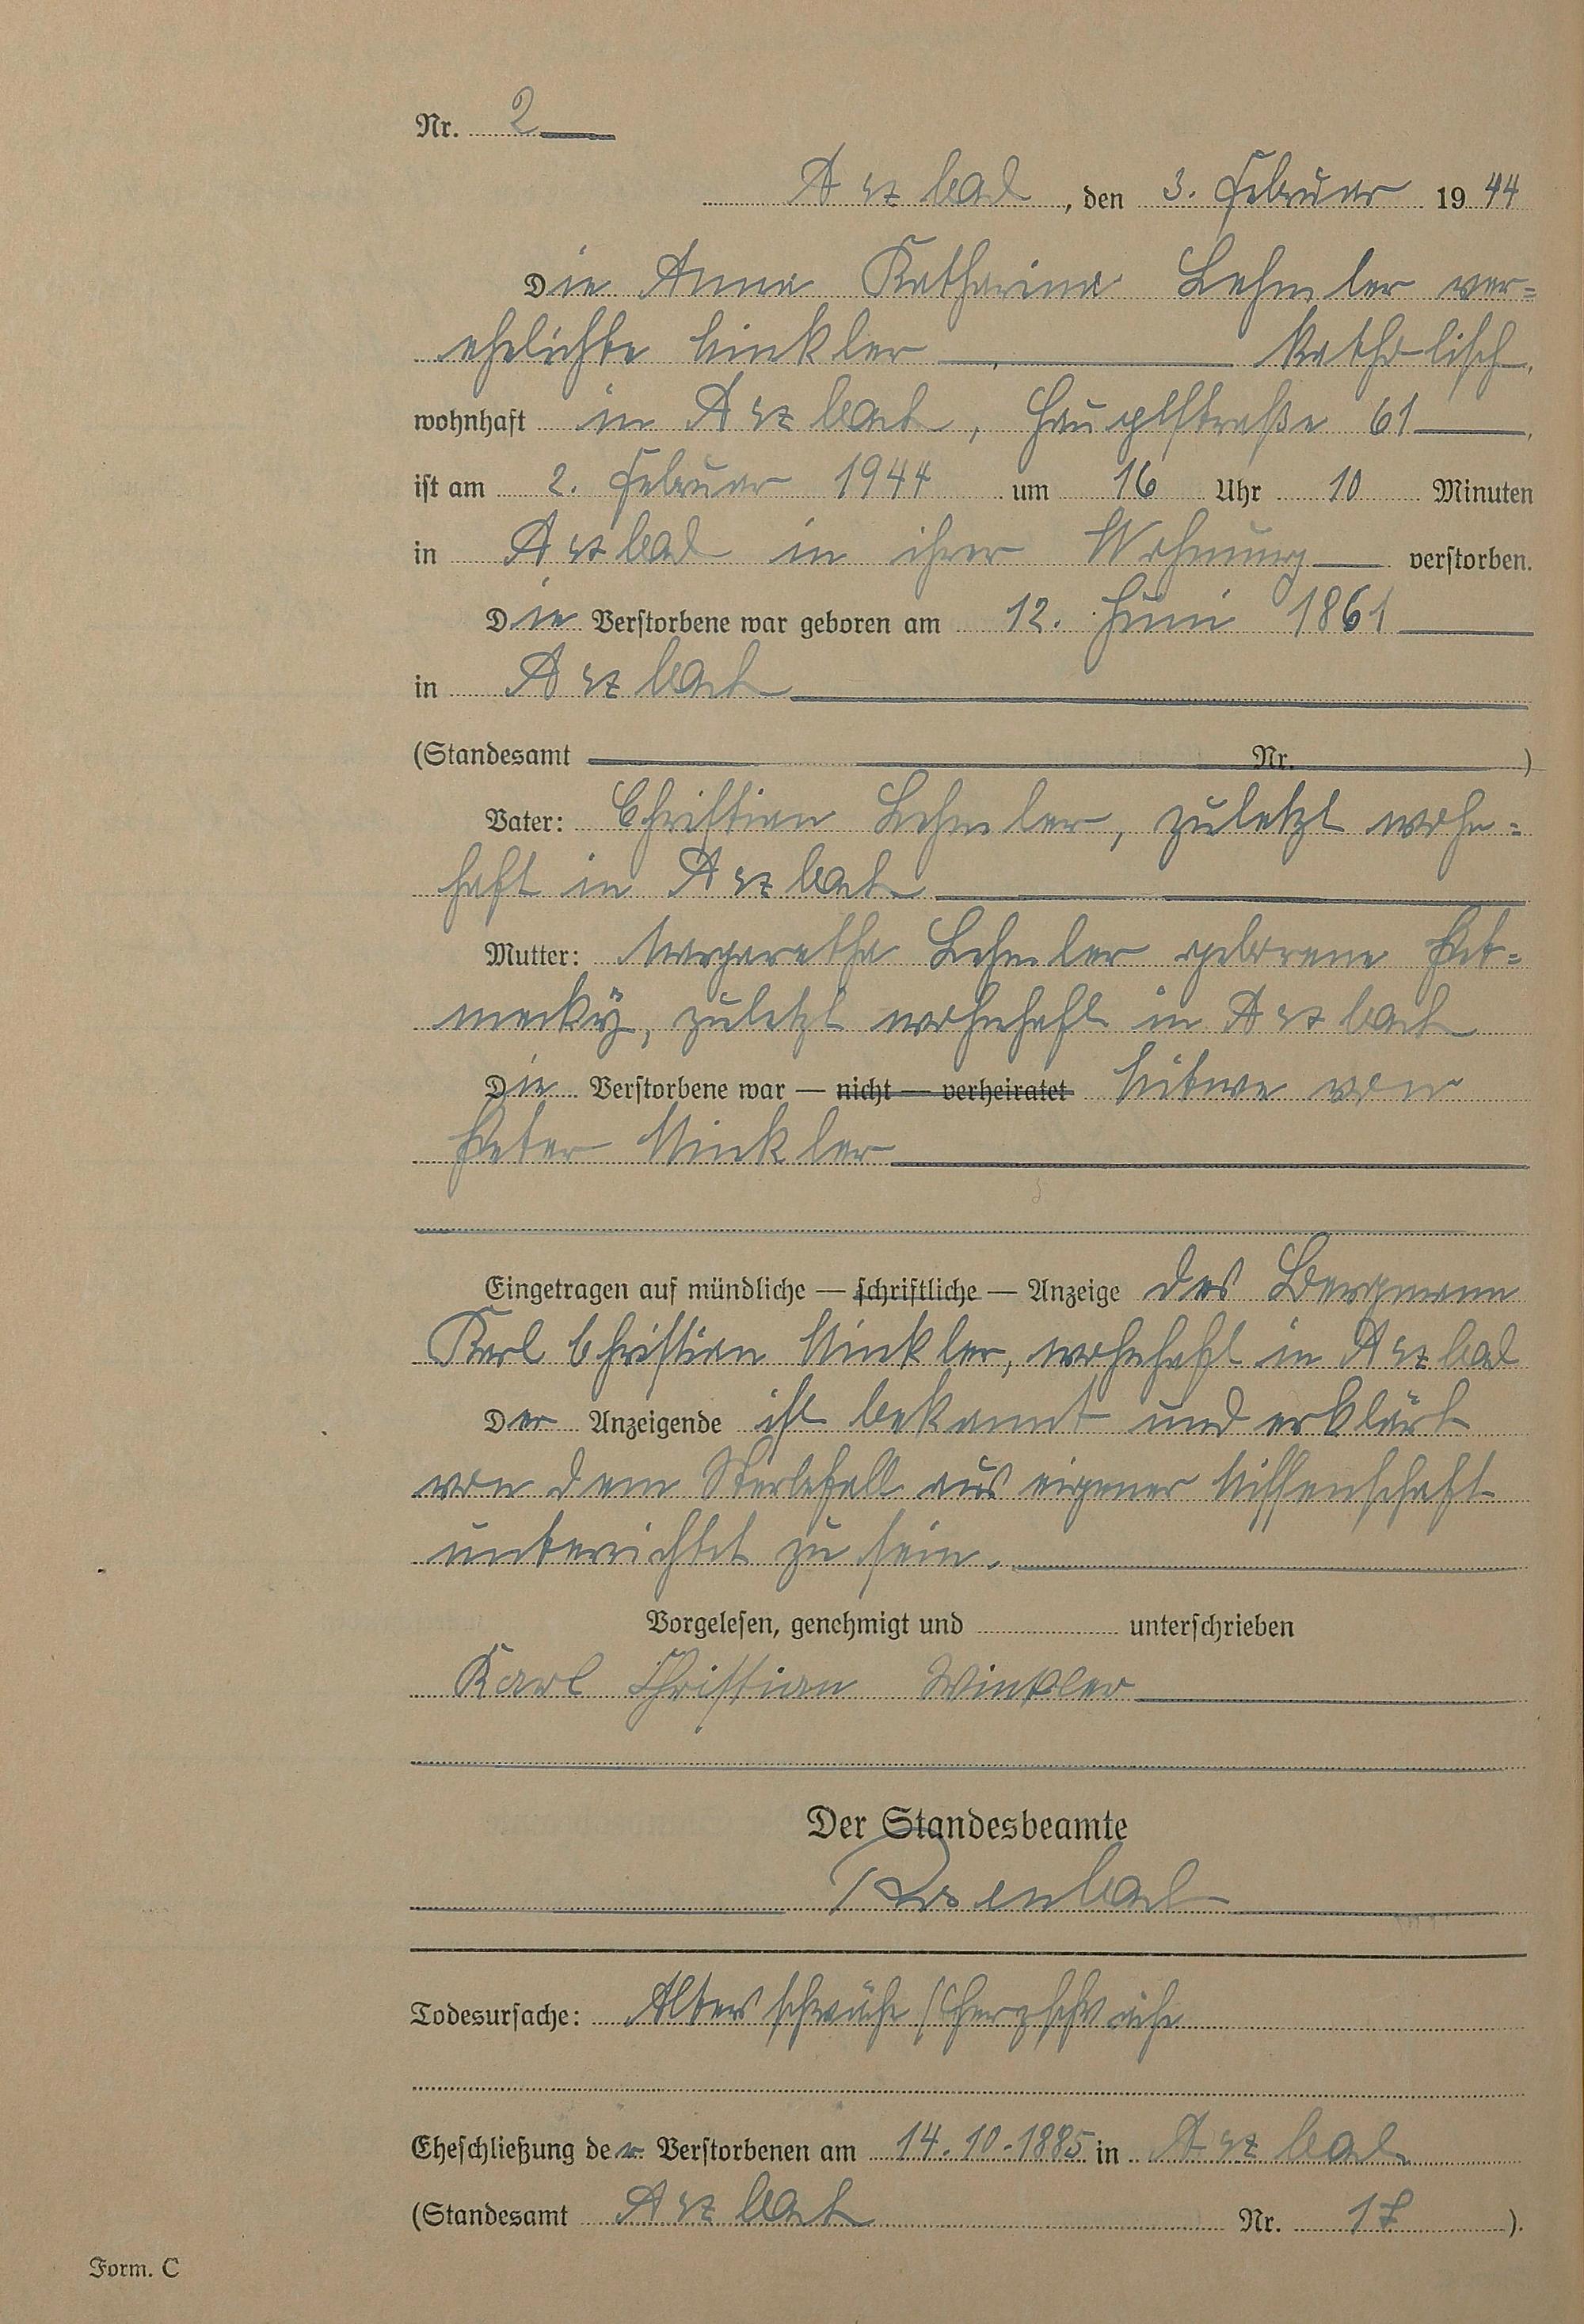 Nr. 2
Arzbach, den 3. Februar 1944
Die Anna Katharina Lehmler ver=
ehelichte Winkler katholisch,
wohnhaft in Arzbach, Hauptstraße 61,
ist am 2. Februar 1944 um 16 Uhr 10 Minuten
in Arzbach in ihrer Wohnung verstorben.
Die Verstorbene war geboren am 12. Juni 1861
in Arzbach
(Standesamt Nr. )
Vater: Christian Lehmler, zuletzt wohn=
haft in Arzbach
Mutter: Margaretha Lehmler geborene Pet=
mecky, zuletzt wohnhaft in Arzbach
Die Verstorbene war — nicht — verheiratet Witwe von
Peter Winkler
Eingetragen auf mündliche — schriftliche — Anzeige des Bergmann
Karl Christian Winkler, wohnhaft in Arzbach
Der Anzeigende ist bekannt und erklärt
von dem Sterbefall aus eigener Wissenschaft
unterrichtet zu sein.
Vorgelesen, genehmigt und unterschrieben
Karl Christian Winkler
Der Standesbeamte
Rosenbach
Todesursache: Altersschwäche, Herzschwäche
Eheschließung der Verstorbenen am 14.10.1885 in Arzbach
(Standesamt Arzbach Nr. 17 ).
Form. C